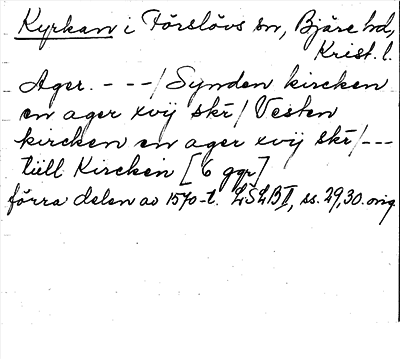 Kyrkan i Förslövs sn, Bjäre hd,
Krist. l.
Ager. - - -/ Synden kircken
en ager xvij skr/ Vesten
kircken en ager xvij skr/ - - -
tüll Kircken [6 ggr]
förra delen av 1570-t. LSLB II, ss. 29, 30. orig.